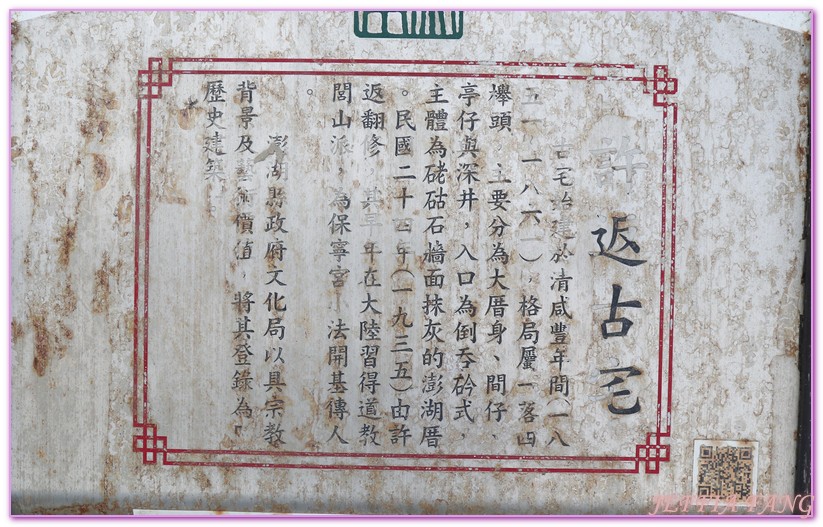 許返古宅
古宅始建於清咸豐年間一八
五一 一八六一)，格局屬一落四
櫸頭，主要分為大厝身、間仔、
亭仔與深井，入口為倒吞砛式，
主體為硓𥑮石牆面抹灰的澎湖厝
。民國二十四年(一九三五)由許
返翻修，其早年在大陸習得道教
閭山派，為保寧宮小法開基傳人
。
澎湖縣政府文化局以具宗教
背景及藝術價值，將其登錄為『
歷史建築』。
JETTIA FANG